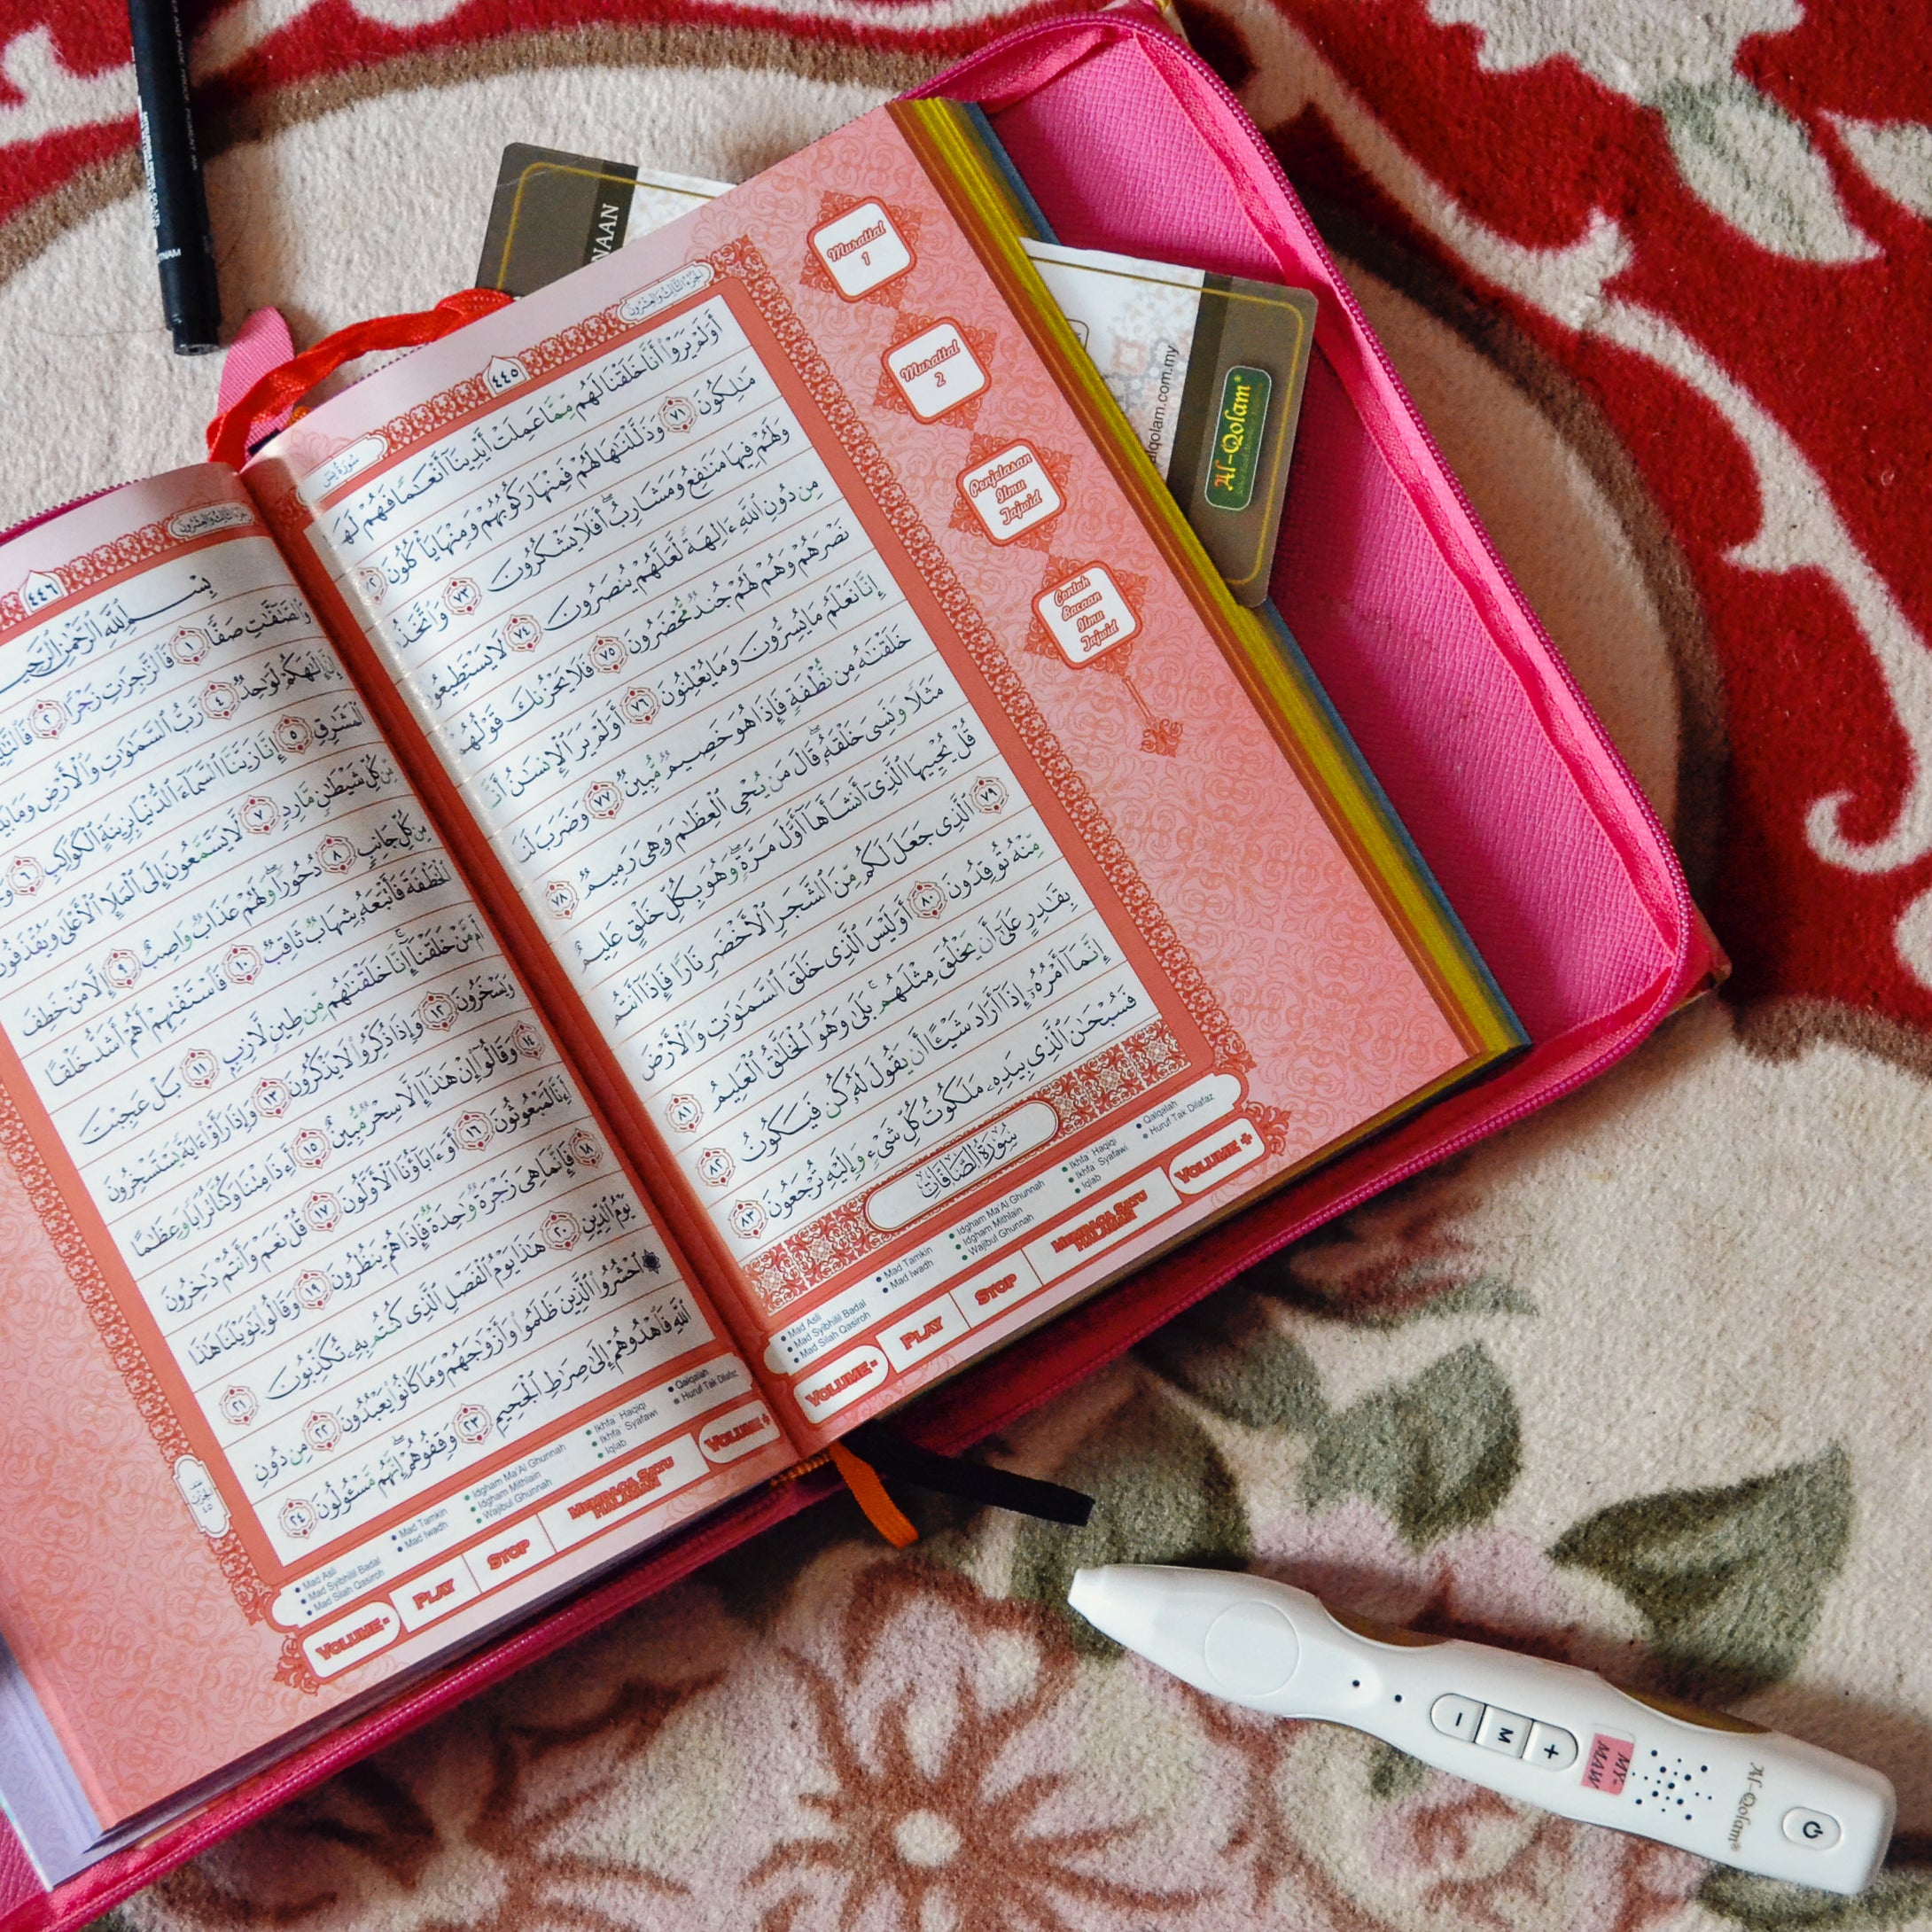 سُورَةُ يسٓ
٤٤٥
الجزء الثالث والعشرون
أَوَلَمْ يَرَوْا۟ أَنَّا خَلَقْنَا لَهُم مِّمَّا عَمِلَتْ أَيْدِينَآ أَنْعَـٰمًا فَهُمْ لَهَا
مَـٰلِكُونَ ٧١ وَذَلَّلْنَـٰهَا لَهُمْ فَمِنْهَا رَكُوبُهُمْ وَمِنْهَا يَأْكُلُونَ ٧٢
وَلَهُمْ فِيهَا مَنَـٰفِعُ وَمَشَارِبُ ۖ أَفَلَا يَشْكُرُونَ ٧٣ وَٱتَّخَذُوا۟
مِن دُونِ ٱللَّهِ ءَالِهَةً لَّعَلَّهُمْ يُنصَرُونَ ٧٤ لَا يَسْتَطِيعُونَ
نَصْرَهُمْ وَهُمْ لَهُمْ جُندٌ مُّحْضَرُونَ ٧٥ فَلَا يَحْزُنكَ قَوْلُهُمْ
إِنَّا نَعْلَمُ مَا يُسِرُّونَ وَمَا يُعْلِنُونَ ٧٦ أَوَلَمْ يَرَ ٱلْإِنسَـٰنُ أَنَّا
خَلَقْنَـٰهُ مِن نُّطْفَةٍ فَإِذَا هُوَ خَصِيمٌ مُّبِينٌ ٧٧ وَضَرَبَ لَنَا
مَثَلًا وَنَسِىَ خَلْقَهُۥ ۖ قَالَ مَن يُحْىِ ٱلْعِظَـٰمَ وَهِىَ رَمِيمٌ ٧٨
قُلْ يُحْيِيهَا ٱلَّذِىٓ أَنشَأَهَآ أَوَّلَ مَرَّةٍ ۖ وَهُوَ بِكُلِّ خَلْقٍ عَلِيمٌ
٧٩ ٱلَّذِى جَعَلَ لَكُم مِّنَ ٱلشَّجَرِ ٱلْأَخْضَرِ نَارًا فَإِذَآ أَنتُم
مِّنْهُ تُوقِدُونَ ٨٠ أَوَلَيْسَ ٱلَّذِى خَلَقَ ٱلسَّمَـٰوَٰتِ وَٱلْأَرْضَ
بِقَـٰدِرٍ عَلَىٰٓ أَن يَخْلُقَ مِثْلَهُم ۚ بَلَىٰ وَهُوَ ٱلْخَلَّـٰقُ ٱلْعَلِيمُ ٨١
إِنَّمَآ أَمْرُهُۥٓ إِذَآ أَرَادَ شَيْـًٔا أَن يَقُولَ لَهُۥ كُن فَيَكُونُ ٨٢
فَسُبْحَـٰنَ ٱلَّذِى بِيَدِهِۦ مَلَكُوتُ كُلِّ شَىْءٍ وَإِلَيْهِ تُرْجَعُونَ ٨٣
سُورَةُ الصَّافَّاتِ
Mad Asli
Mad Syibhlil Badal
Mad Silah Qasiroh
Mad Tamkin
Mad Iwadh
Idgham Ma'Al Ghunnah
Idgham Mithlain
Wajibul Ghunnah
Ikhfa' Haqiqi
Ikhfa' Syafawi
Iqlab
Qalqalah
Huruf Tak Dilafaz
VOLUME -
PLAY
STOP
MEMBACA SATU HALAMAN
VOLUME +
Murattal 1
Murattal 2
Penjelasan Ilmu Tajwid
Contoh Bacaan Ilmu Tajwid
الجزء الثالث والعشرون
٤٤٦
بِسْمِ ٱللَّهِ ٱلرَّحْمَـٰنِ ٱلرَّحِيمِ
وَٱلصَّـٰٓفَّـٰتِ صَفًّا ١ فَٱلزَّٰجِرَٰتِ زَجْرًا ٢
إِنَّ إِلَـٰهَكُمْ لَوَٰحِدٌ ٤ رَّبُّ ٱلسَّمَـٰوَٰتِ وَٱلْأَرْضِ وَمَا
ٱلْمَشَـٰرِقِ ٥ إِنَّا زَيَّنَّا ٱلسَّمَآءَ ٱلدُّنْيَا بِزِينَةٍ ٱلْكَوَاكِبِ ٦
مِّن كُلِّ شَيْطَـٰنٍ مَّارِدٍ ٧ لَّا يَسَّمَّعُونَ إِلَى ٱلْمَلَإِ ٱلْأَعْلَىٰ وَيُقْذَفُونَ
مِن كُلِّ جَانِبٍ ٨ دُحُورًا ۖ وَلَهُمْ عَذَابٌ وَاصِبٌ ٩ إِلَّا مَنْ خَطِفَ
ٱلْخَطْفَةَ فَأَتْبَعَهُۥ شِهَابٌ ثَاقِبٌ ١٠ فَٱسْتَفْتِهِمْ أَهُمْ أَشَدُّ خَلْقًا
أَم مَّنْ خَلَقْنَآ ۚ إِنَّا خَلَقْنَـٰهُم مِّن طِينٍ لَّازِبٍ ١١ بَلْ عَجِبْتَ
وَيَسْخَرُونَ ١٢ وَإِذَا ذُكِّرُوا۟ لَا يَذْكُرُونَ ١٣ وَإِذَا رَأَوْا۟ ءَايَةً يَسْتَسْخِرُونَ
١٤ وَقَالُوٓا۟ إِنْ هَـٰذَآ إِلَّا سِحْرٌ مُّبِينٌ ١٥ أَءِذَا مِتْنَا وَكُنَّا تُرَابًا وَعِظَـٰمًا
أَءِنَّا لَمَبْعُوثُونَ ١٦ أَوَءَابَآؤُنَا ٱلْأَوَّلُونَ ١٧ قُلْ نَعَمْ وَأَنتُمْ دَٰخِرُونَ
١٨ فَإِنَّمَا هِىَ زَجْرَةٌ وَٰحِدَةٌ فَإِذَا هُمْ يَنظُرُونَ ١٩ وَقَالُوا۟ يَـٰوَيْلَنَا هَـٰذَا
يَوْمُ ٱلدِّينِ ٢٠ هَـٰذَا يَوْمُ ٱلْفَصْلِ ٱلَّذِى كُنتُم بِهِۦ تُكَذِّبُونَ ٢١
۞ ٱحْشُرُوا۟ ٱلَّذِينَ ظَلَمُوا۟ وَأَزْوَٰجَهُمْ وَمَا كَانُوا۟ يَعْبُدُونَ ٢٢ مِن دُونِ
ٱللَّهِ فَٱهْدُوهُمْ إِلَىٰ صِرَٰطِ ٱلْجَحِيمِ ٢٣ وَقِفُوهُمْ ۖ إِنَّهُم مَّسْـُٔولُونَ ٢٤
Mad Asli
Mad Syibhlil Badal
Mad Silah Qasiroh
Mad Tamkin
Mad Iwadh
Idgham Ma'Al Ghunnah
Idgham Mithlain
Wajibul Ghunnah
Ikhfa' Haqiqi
Ikhfa' Syafawi
Iqlab
Qalqalah
Huruf Tak Dilafaz
VOLUME -
PLAY
STOP
MEMBACA SATU HALAMAN
VOLUME +
NAAN
alqolam.com.my
Al-Qolam®
- M +
MY-MAW
Al-Qolam®